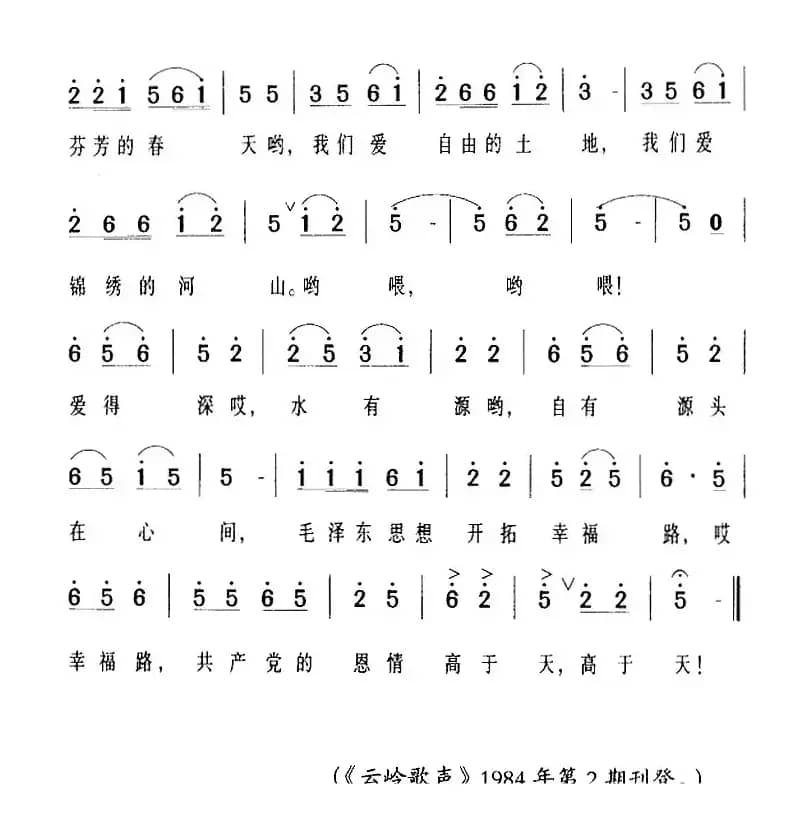 2 2 1 5 6 1 | 5 5 | 3 5 6 1 | 2 6 6 1 2 | 3 - | 3 5 6 1 |
芬芳的春 天哟,我们爱 自由的土 地,我们爱
2 6 6 1 2 | 5 ∨ 1 2 | 5 - | 5 6 2 | 5 - | 5 0 |
锦绣的河 山。哟 喂, 哟 喂!
6 5 6 | 5 2 | 2 5 3 1 | 2 2 | 6 5 6 | 5 2 |
爱得 深哎,水有 源哟,自有 源头
6 5 1 5 | 5 - | 1 1 1 6 1 | 2 2 | 5 2 5 | 6 · 5 |
在心 间,毛泽东思想 开拓 幸福 路,哎
6 5 6 | 5 5 6 5 | 2 5 | 6 2 | 5 ∨ 2 2 | 5 - ‖
幸福路,共产党的 恩情 高于 天,高于 天!
(《云岭歌声》1984年第2期刊登。)